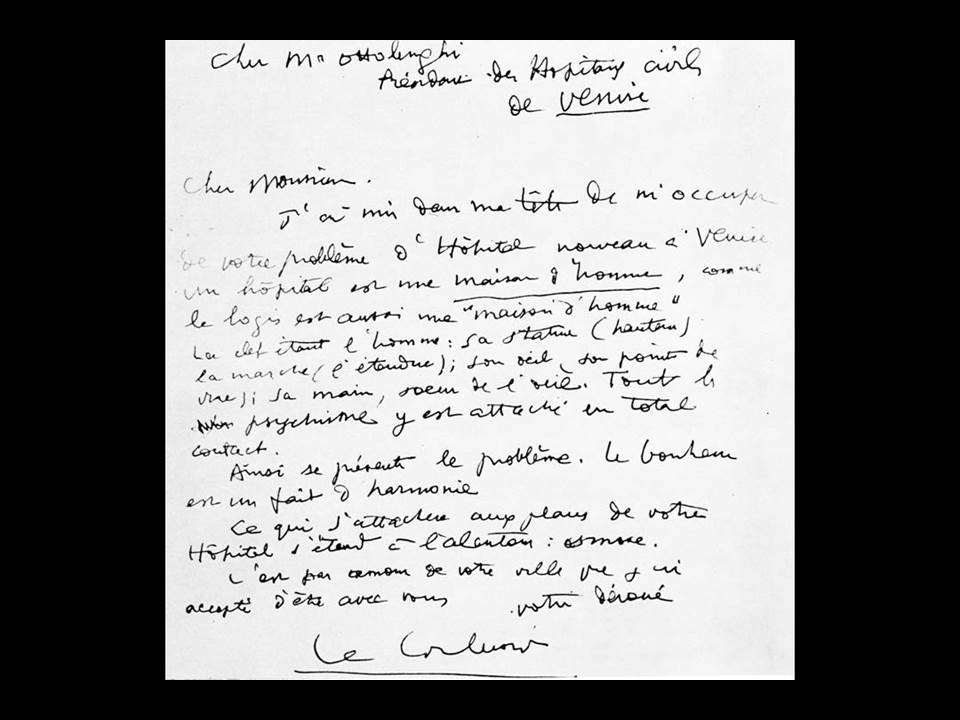 Cher Mr Ottolenghi
Président des Hopitaux civils
de Venise
Cher Monsieur.
J'ai mis dans ma tête de m'occuper
de votre problème d'Hôpital nouveau à Venise
un hôpital est une maison d'homme, comme
le logis est aussi une "maison d'homme"
La clef étant l'homme: sa stature (hauteur)
la marche (l'étendue); son œil, son point de
vue); sa main, soeur de l'œil. Tout le
psychisme y est attaché en total
contact.
Ainsi se présente le problème. Le bonheur
est un fait d'harmonie
Ce qui s'attachera aux plans de votre
Hôpital s'étend à l'alentour: osmose.
C'est par amour de votre ville que j'ai
accepté d'être avec vous
votre dévoué
Le Corbusier